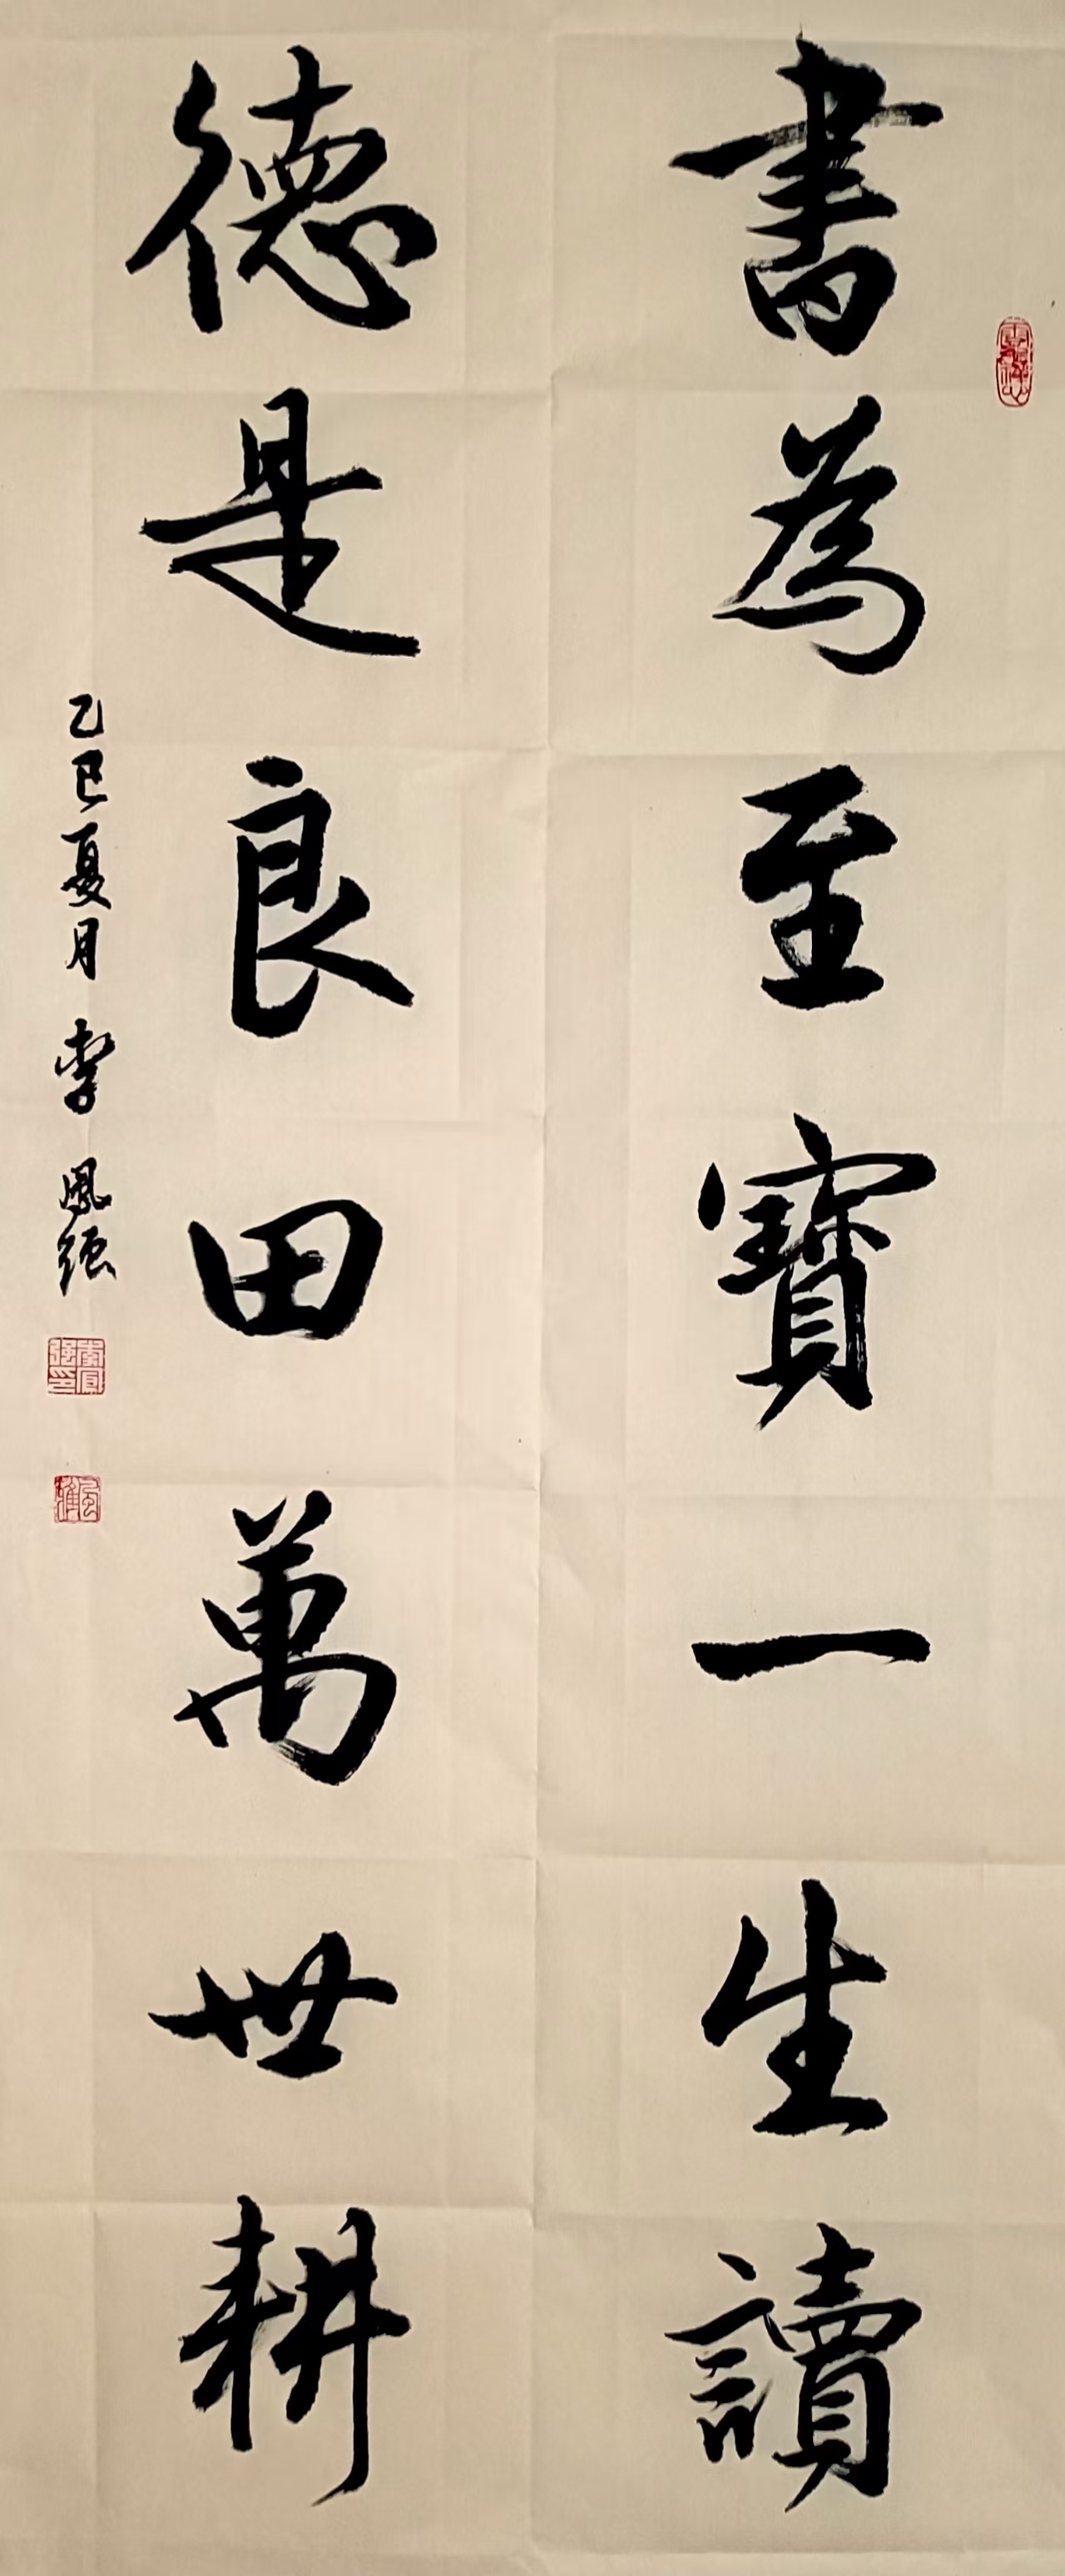 書為至寶一生讀
德是良田萬世耕
乙巳夏月 李鳳强